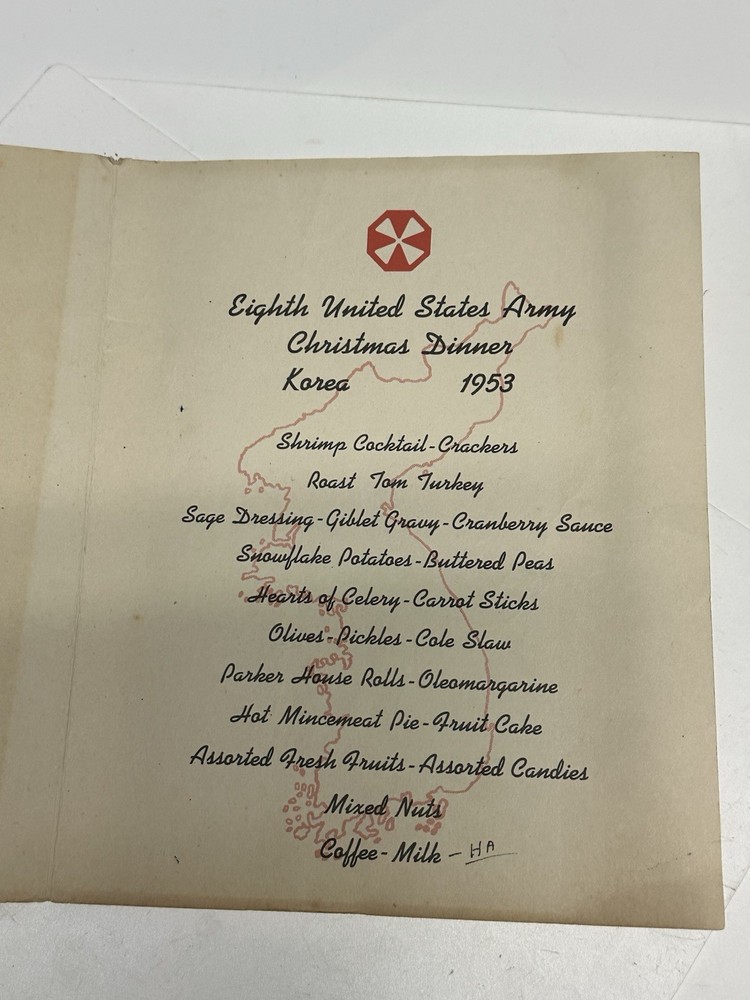 Eighth United States Army
Christmas Dinner
Korea 1953
Shrimp Cocktail-Crackers
Roast Tom Turkey
Sage Dressing-Giblet Gravy-Cranberry Sauce
Snowflake Potatoes-Buttered Peas
Hearts of Celery-Carrot Sticks
Olives-Pickles-Cole Slaw
Parker House Rolls-Oleomargarine
Hot Mincemeat Pie-Fruit Cake
Assorted Fresh Fruits-Assorted Candies
Mixed Nuts
Coffee-Milk - HA